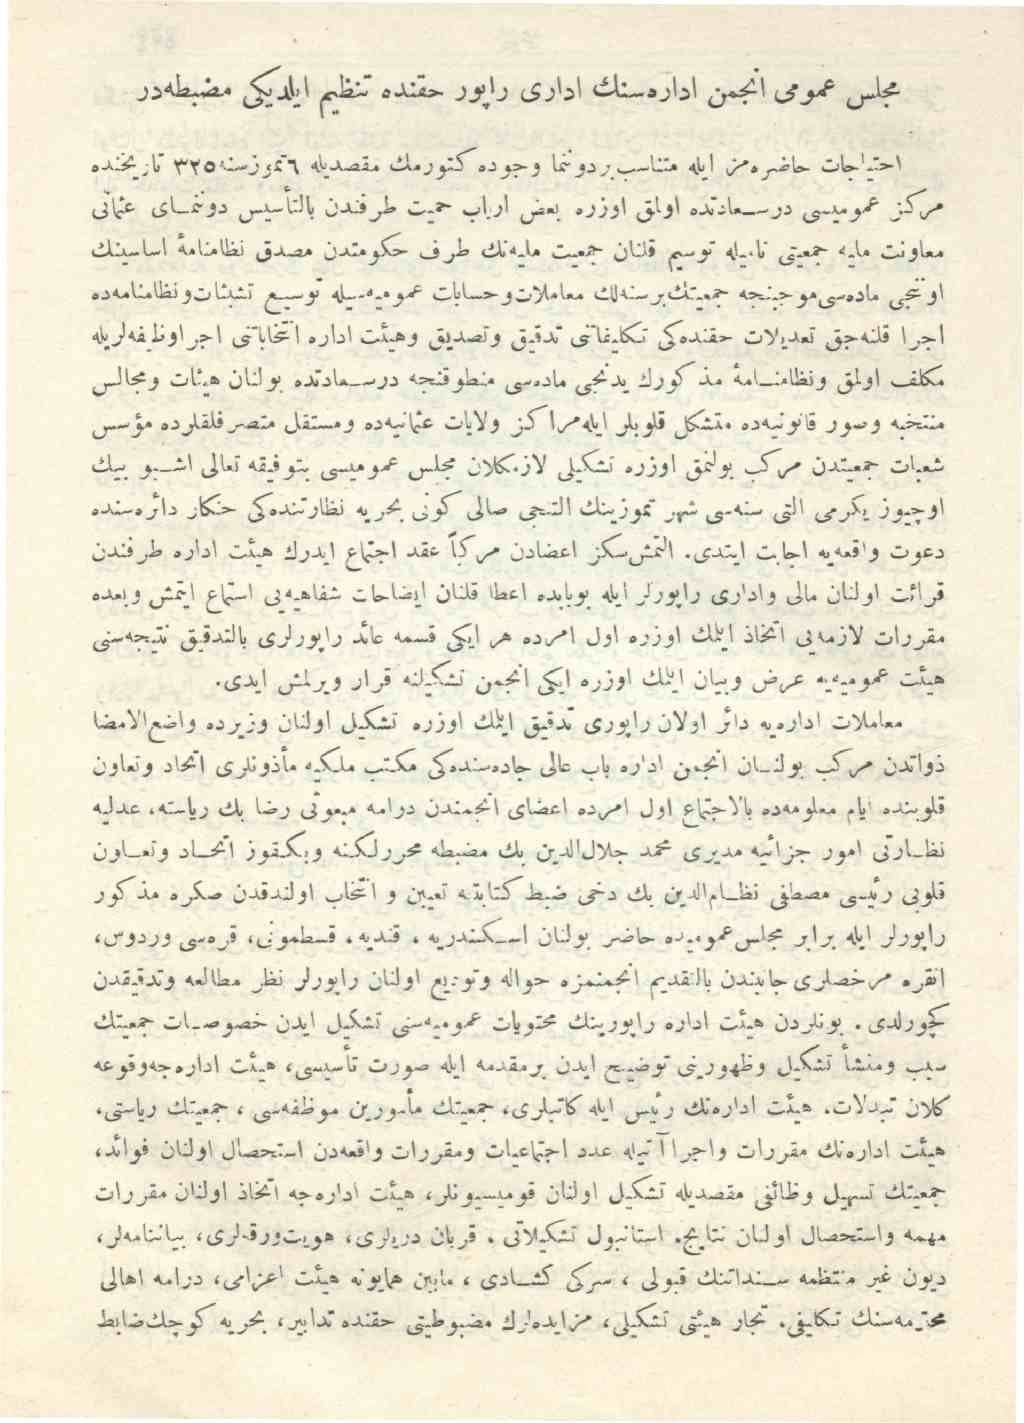 مجلس عمومی انجمن اداره‌سنك اداری راپور حقنده تنظیم ایلدیکی مضبطه‌در
احتیاجات حاضره‌مز ایله متناسب بر دوننما وجوده كتورمك مقصدیله ٦ تموز سنه ٣٢٥ تاریخنده
مركز عمومیسی درسعادتده اولمق اوزره بعض ارباب حمیت طرفندن بالتأسیس دوننمای عثمانی
معاونت ملیه جمعیتی نامیله توسیم قلنان جمعیت ملیه‌نك طرف حكومتدن مصدق نظامنامهٔ اساسینك
اوننجی ماده‌سی موجبنجه جمعیتك برسنه‌لك معاملات و حسابات عمومیه‌سیله توسیع تشبثات و نظامنامه‌ده
اجرا قلنه‌جق تعدیلات حقنده‌كی تكلیفاتنی تدقیق وتصدیق وهیئت اداره انتخاباتنی اجرا وظیفه‌لریله
مكلف اولمق ونظامنامهٔ مذكورك یدنجی ماده‌سی منطوقنجه درسعادتده بولنان هیئات ومجالس
منتخبه وصور قانونیه‌ده متشكل قلوبلر ایله مراكز ولایات عثمانیه‌ده ومستقل متصرفلقلرده مؤسس
شعبات جمعیتدن مركب بولنمق اوزره تشكیلی لازمكلان مجلس عمومیسی بتوفیقه تعالی اشبو بیك
اوچیوز یكرمی التی سنه‌سی شهر تموزینك التنجی صالی كونی بحریه نظارتنده‌كی خنكار دائره‌سنده
دعوت واقعه‌یه اجابت ایتدی. التمش‌سكز اعضادن مركباً عقد اجتماع ایدرك هیئت اداره طرفندن
قرائت اولنان مالی واداری راپورلر ایله بوبابده اعطا قلنان ایضاحات شفاهیه‌یی استماع ایتمش وبعده
مقررات لازمه‌یی اتخاذ ایلمك اوزره اول امرده هر ایكی قسمه عائد راپورلری بالتدقیق نتیجه‌سنی
هیئت عمومیه‌یه عرض وبیان ایلمك اوزره ایكی انجمن تشكیلنه قرار ویرلمش ایدی.
معاملات اداره‌یه دائر اولان راپوری تدقیق ایلمك اوزره تشكیل اولنان وزیرده واضع‌الامضا
ذواتدن مركب بولنان انجمن اداره باب عالی جاده‌سنده‌كی مكتب ملكیه مأذونلری اتحاد وتعاون
قلوبنده ایام معلومه‌ده بالاجتماع اول امرده اعضای انجمندن درامه مبعوثی رضا بك ریاسته، عدلیه
نظارتی امور جزائیه مدیری محمد جلال‌الدین بك مضبطه محررلكنه وبكقوز اتحاد وتعاون
قلوبی رئیسی مصطفی نظام‌الدین بك دخی ضبط كتابتنه تعیین و انتخاب اولندقدن صكره مذكور
راپورلر ایله برابر مجلس عمومیده حاضر بولنان اسكندریه، قندیه، قسطمونی، قره‌سی وردوس،
انقره مرخصلری جانبندن بالتقدیم انجمنمزه حواله وتودیع اولنان راپورلر نظر مطالعه وتدقیقدن
كچورلدی. بونلردن هیئت اداره راپورینك محتویات عمومیه‌سنی تشكیل ایدن خصوصات جمعیتك
سبب ومنشأ تشكیل وظهورینی توضیح ایدن برمقدمه ایله صورت تأسیسی، هیئت اداره‌جه وقوعه
كلان تبدلات. هیئت اداره‌نك رئیس ایله كاتبلری، جمعیتك مأمورین موظفه‌سی، جمعیتك ریاستی،
هیئت اداره‌نك مقررات واجراآتیله عدد اجتماعیات ومقررات واقعه‌دن استحصال اولنان فوائد،
جمعیتك تسهیل وظائفی مقصدیله تشكیل اولنان قومیسیونلر، هیئت اداره‌جه اتخاذ اولنان مقررات
مهمه واستحصال اولنان نتایج. استانبول تشكیلاتی. قربان دریلری، هویت ورقه‌لری، بیاننامه‌لر،
دیون غیر منتظمه سنداتنك قبولی، سركی كشادی، مابین همایونه هیئت اعزامی، درامه اهالی
محترمه‌سنك تكلیفی. تجار هیئتی تشكیلی، مزایده‌لرك مضبوطیتی حقنده تدابیر، بحریه كوچك‌ضابط